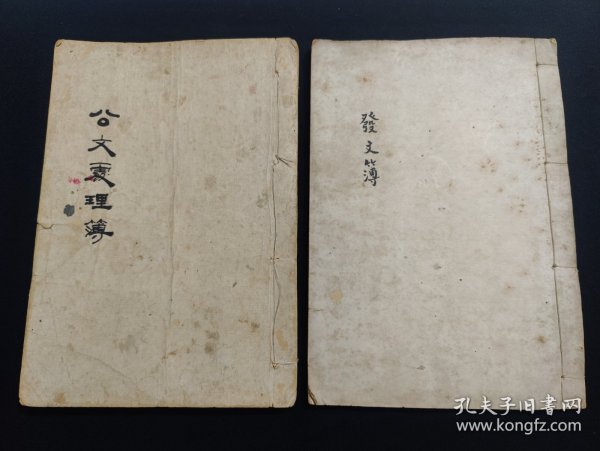 公文處理簿
發文簿
孔夫子旧書网
www.kongfz.com